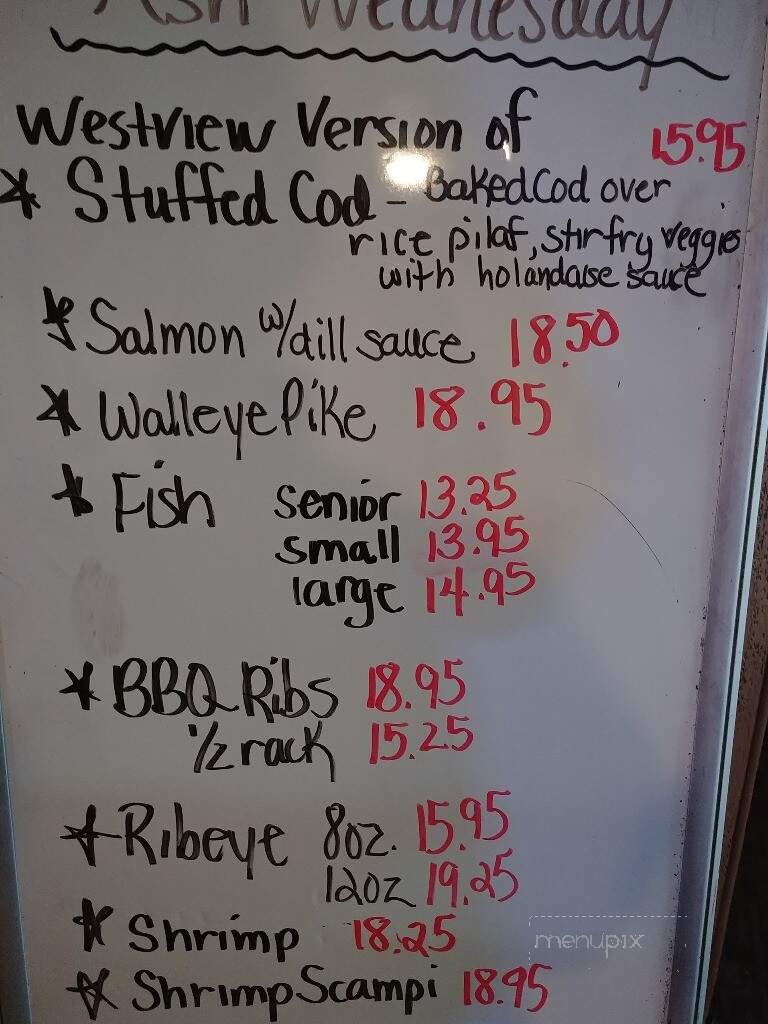 Ash Wednesday
Westview Version of 15.95
* Stuffed Cod - Baked Cod over
rice pilaf, stirfry veggies
with holandaise sauce
* Salmon w/dill sauce 18.50
* Walleye Pike 18.95
* Fish senior 13.25
small 13.95
large 14.95
* BBQ Ribs 18.95
1/2 rack 15.25
* Ribeye 8oz. 15.95
12oz 19.25
* Shrimp 18.25
* Shrimp Scampi 18.95
menupix